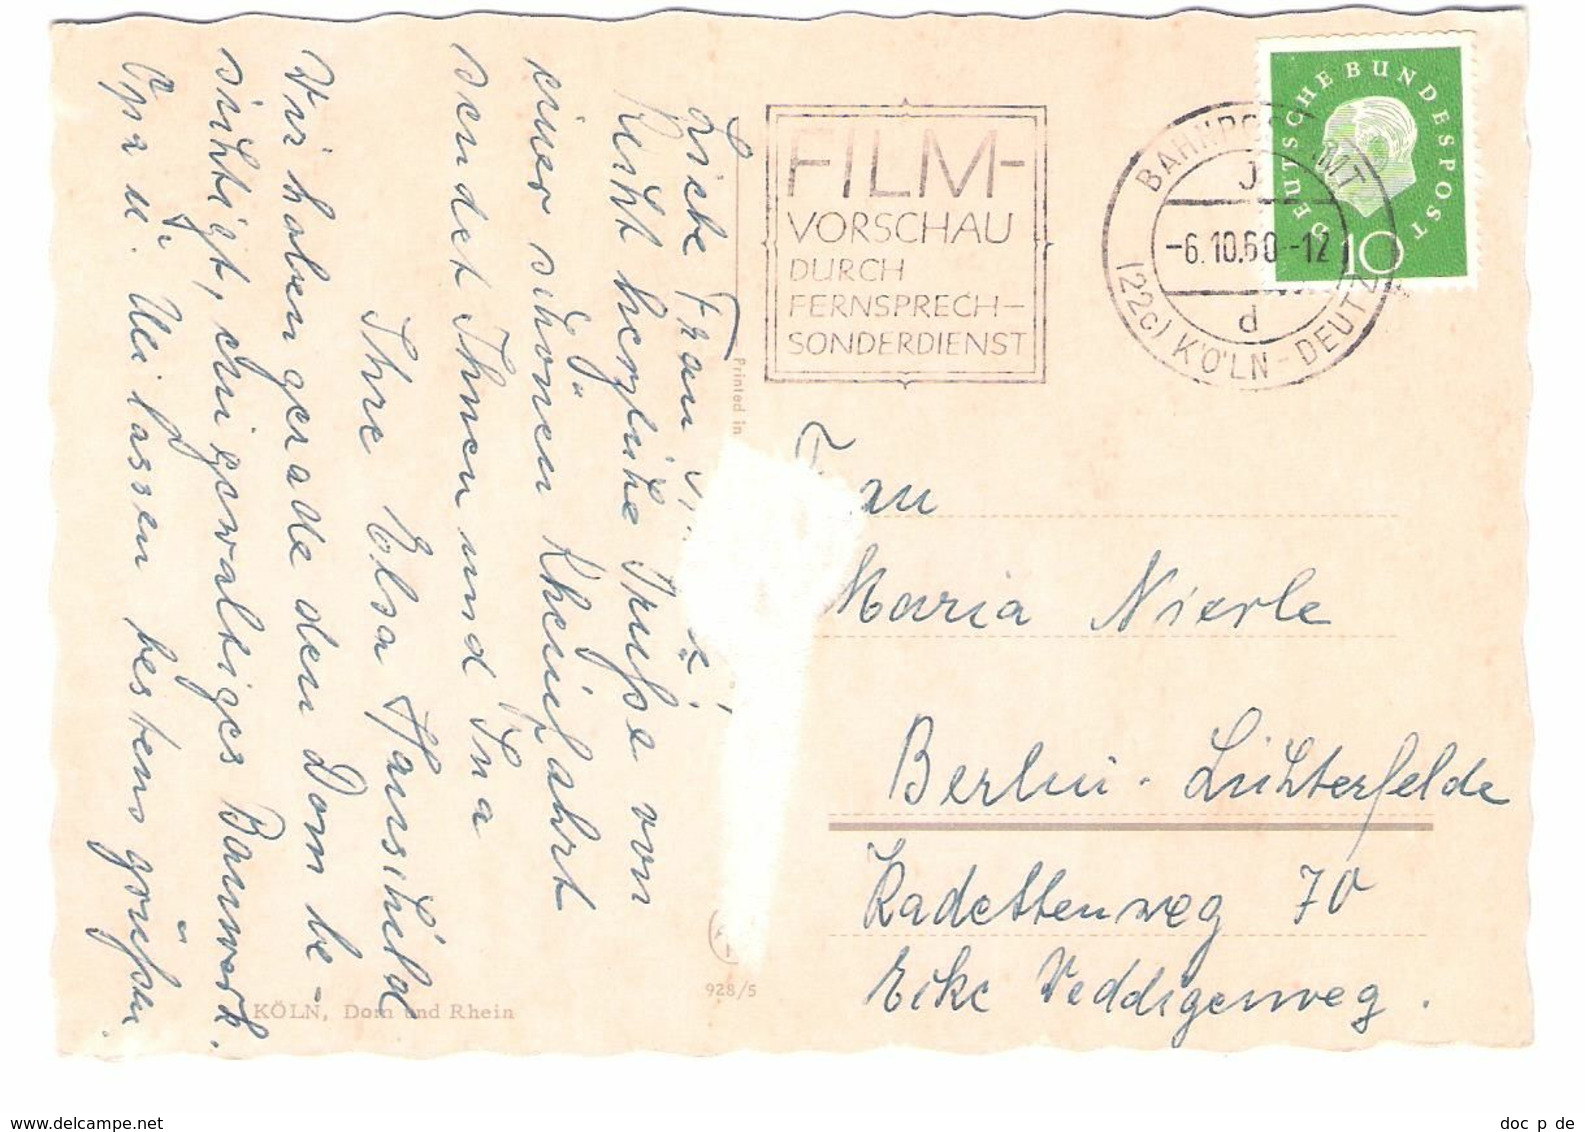 Liebe Frau
Recht herzliche Grüße von
einer schönen Rheinfahrt
sendet Ihnen und Ina
Ihre Elsa Hanschild
Wir haben gerade den Dom be-
sichtigt, ein gewaltiges Bauwerk.
Opa u. Uli lassen bestens grüßen.
FILM-
VORSCHAU
DURCH
FERNSPRECH-
SONDERDIENST
BAHNPOSTAMT
-6.10.60-12
d
(22c) KÖLN-DEUTZ
DEUTSCHE BUNDESPOST
10
Printed in
Frau
Maria Nierle
Berlin-Lichterfelde
Kadettenweg 70
Eike Weddigenweg.
928/5
KÖLN, Dom und Rhein
www.delcampe.net
doc_p_de